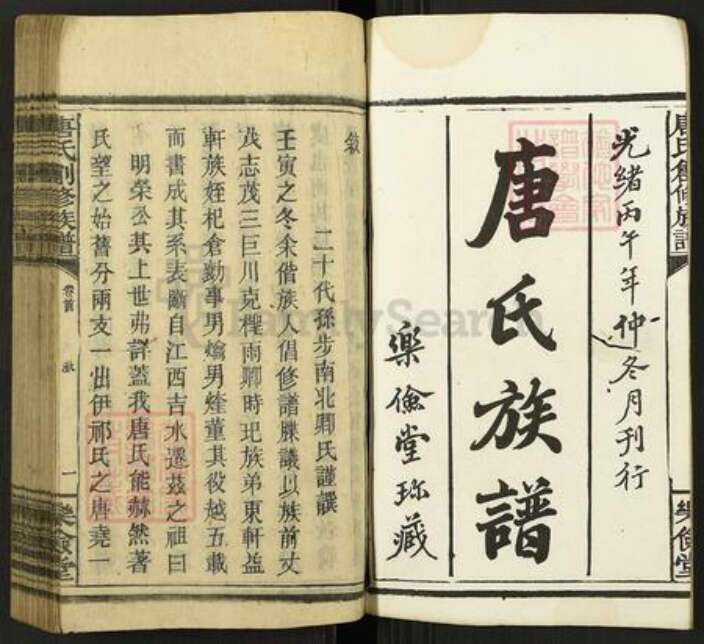 光緒丙午年仲冬月刊行
唐氏族譜
樂儉堂珍藏
唐氏創修族譜
樂儉堂
敘
二十代孫步南北卿氏謹譔
壬寅之冬余偕族人倡修譜牒議以族前丈
茂志茂三巨川克樫雨卿時玘族弟東軒益
軒族姪杞倉勷事男爚男煃董其役越五載
而書成其系表斷自江西吉水遷茲之祖曰
明榮公其上世弗詳蓋我唐氏能赫然著
氏望之始舊分兩支一出伊祁氏之唐堯一
唐氏創修族譜
卷首
敘
一
樂儉堂
FamilySearch